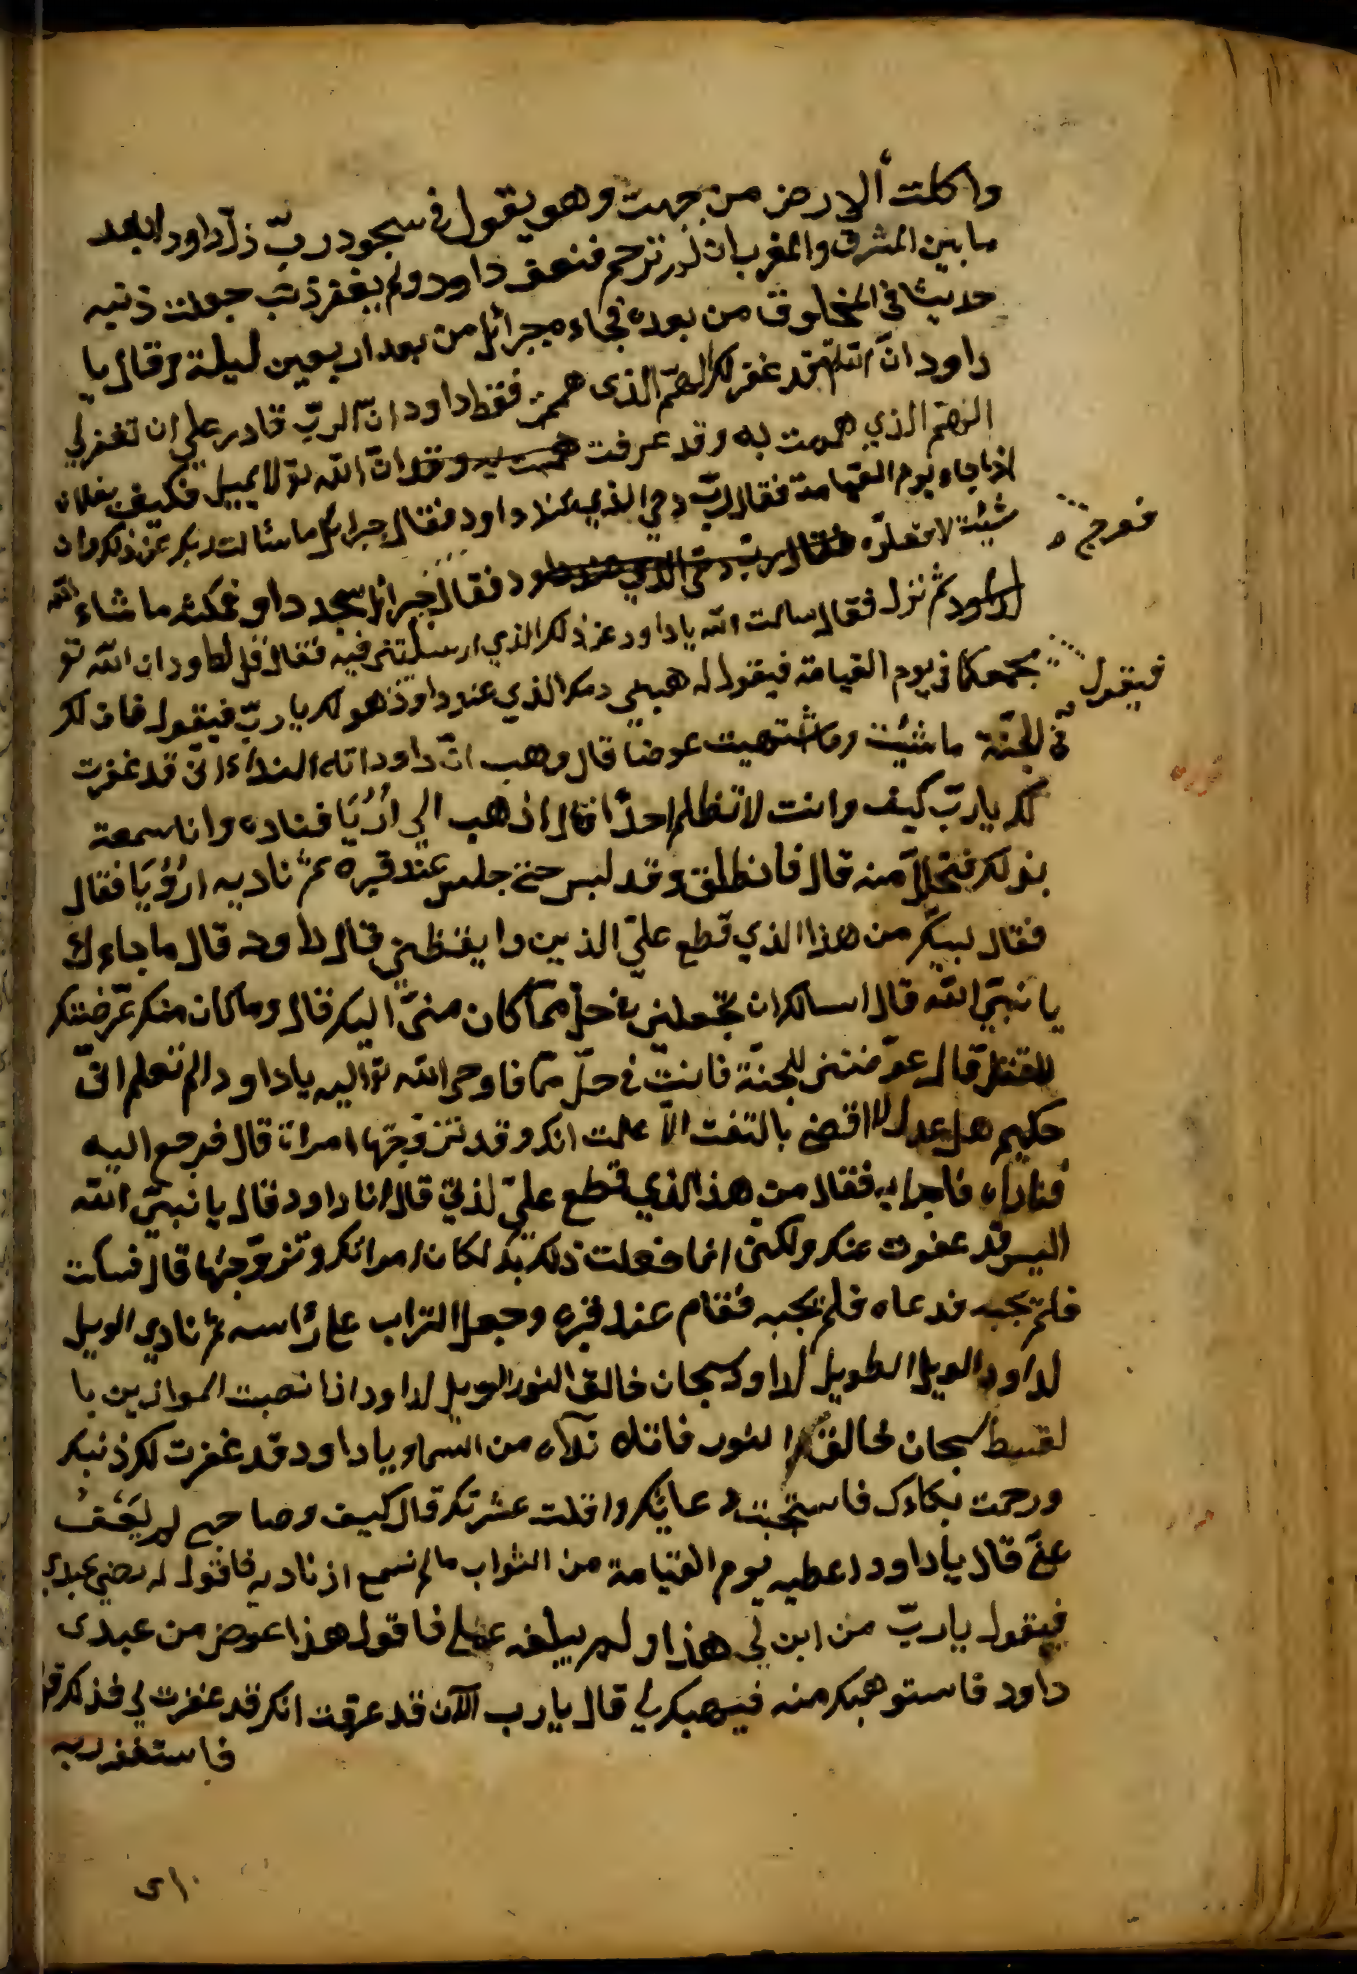 واكلت ألارض من جبهت وهو يقول في سجود ربّ ذلّ داود ابعد
ما بين المشرق والمغرب ان لم ترحم ضعف داود ولم يغفر ذنبه جعلت ذنبه
حديثا في المخلوق من بعده فجاءه جبرائل من بعد اربعين ليلة وقال يا
داود انّ الله قد غفر لك الهمّ الذى هممت فقال داود انّ الربّ قادر علي ان تغفر لي
الهمّ الذي هممت به وقد عرفت انّ الله تو لا يميل فكيف بفلان
اذا جاء يوم القيامة فقال ربّ دمي الذي عند داود فقال جبرائل ما سئالت ربك عن ذلك وان
شيئت لافعلنّ فقال جبرائل سجد داو فمكث ما شاء الله
فعرج
داود ثم نزل فقال سالت الله يا داود عن ذلك الذي ارسلتني فيه فقال قل لداود ان الله تو
يجمعكما في يوم القيامة فيقول له هب لي دمك الذي عند داود فيقول هو لك يا ربّ فيقول فان لك
في الجنّة ما شيئت وما شتهيت عوضا قال وهب انّ داود اتاه النداء انّي قد غفرت
لك يا ربّ كيف وانت لا تظلم احدًا قال اذهب الي اُرُيَا فناده وانا سمعة
بذلك فتحلّل منه قال فانطلق وقد لبس حتي جلس عند قبره ثمّ ناديه ارُؤيَا فقال
فقال لبيّك من هذا الذي قطع عليّ الذين وايقظني قال داود قال ما جاء بك
يا نبيّ الله قال اسالك ان تجعلني في حلّ ممّا كان منيّ اليك قال وما كان منك عرّضتك
للقتل قال عوّضتني للجنّة فانت في حلّ ممّا فاوحي الله تو اليه يا داود الم تعلم انّي
حكيم عدل لا اقضي بالتغت الاّ علمت انك وقد تزوجتها امراته قال فرجع اليه
فناداه فاجابه فقال من هذا الذي قطع عليّ لذتي قال انا داود قال يا نبيّ الله
اليس قد عفوت عنك ولكنّ انما فعلت ذلك بك لكان امراتك وتزوّجتها قال فسكت
فلم يجبه فدعاه فلم يجبه فقام عند قبره وجعل التراب علي رأسه ثم نادي الويل
لداود الويل الطويل لداود سبحان خالق النور الويل لداود اذا نصبت الموازين با
لقسط سبحان خالق النور فاتاه نداء من السماء يا داود قد غفرت لك ذنبك
ورحمت بكاءك فاستجبت دعائك واقلت عشرتك قال كيف وصاحبي لم يَعْفُ
عنّي قال يا داود اعطيه يوم القيامة من الثواب ما لم تسمع اذناه فاقول له رضي عبدي
فيقول يا ربّ من اين لي هذا ولم يبلغه عملي فاقول هذا عوض من عبدى
داود فاستوهبك منه فيهبك لي قال يا رب الآن قد عرفت انك قد غفرت لي فذلك قو
فاستغفر ربه
فيقول